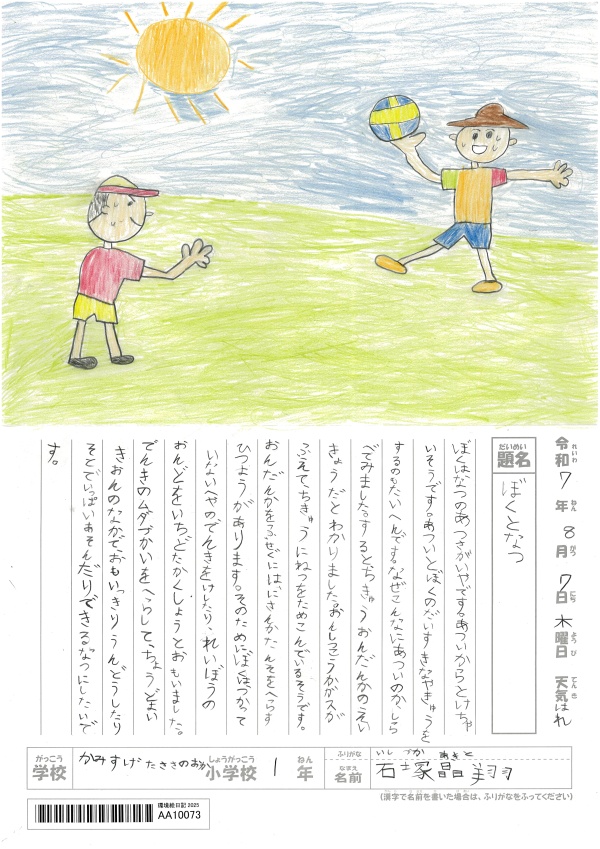 令和7年8月7日木曜日 天気はれ
れいわ ねん がつ にち ようび てんき
だいめい
題名 ぼくとなつ
ぼくはなつのあつさがいやです。あついからとけちゃ
いそうです。あついとぼくのだいすきなやきゅうを
するのもたいへんです。なぜこんなにあついのか、しら
べてみました。するとちきゅうおんだんかのえい
きょうだとわかりました。おんしつこうかガスが
ふえて、ちきゅうにねつをためこんでいるそうです。
おんだんかをふせぐには、にさんかたんそをへらす
ひつようがあります。そのためにぼくは、つかって
いないへやのでんきをけしたり、れいぼうの
おんどをいちどたかくしようとおもいました。
でんきのムダづかいをへらして、ちょうどよい
きおんのなかで、おもいっきりうんどうしたり
そとでいっぱいあそんだりできるなつにしたいで
す。
がっこう しょうがっこう ねん
学校 かみすげたささのおか 小学校 1年
ふりがな いしづか あきと
なまえ
名前 石塚晶翔
(漢字で名前を書いた場合は、ふりがなをふってください)
環境絵日記 2025
AA10073